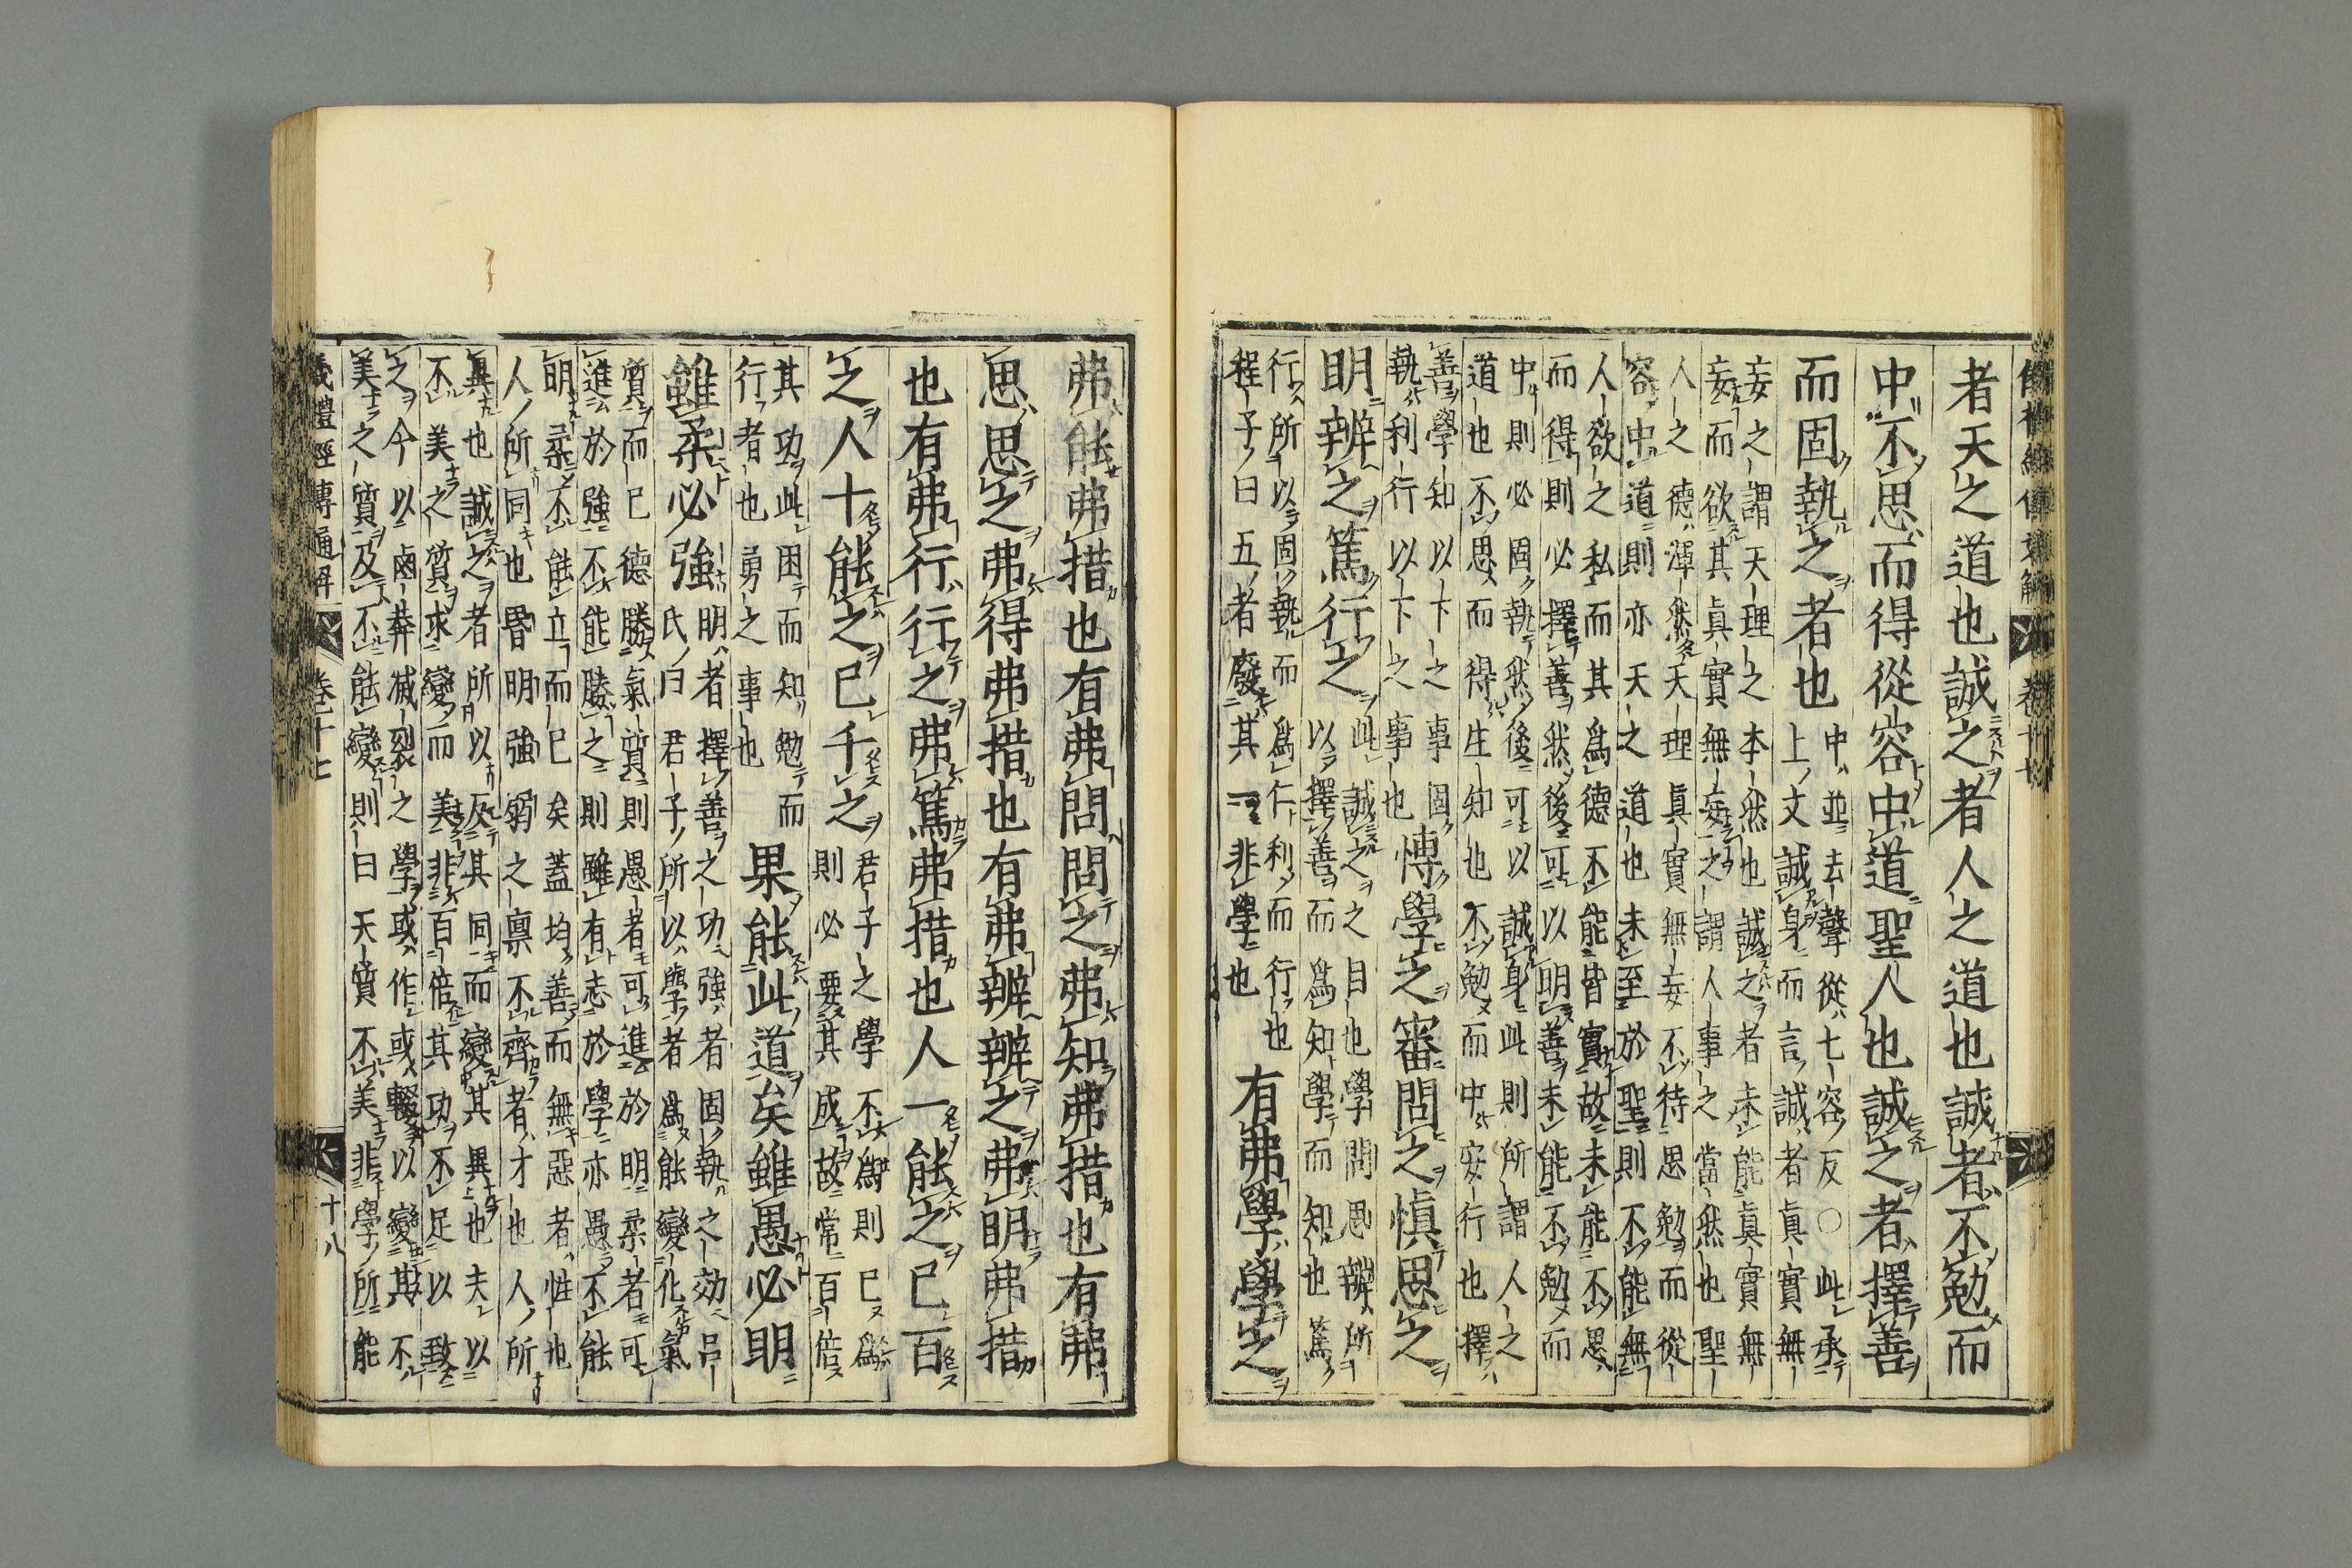 者天之道也誠之者人之道也誠者不勉而
中不思而得從容中道聖人也誠之者擇善
而固執之者也
中並去聲從七容反○此承
上文誠身而言誠者眞實無
妄之謂天理之本然也誠之者未能眞實無
妄而欲其眞實無妄之謂人事之當然也聖
人之德渾然天理眞實無妄不待思勉而從
容中道則亦天之道也未至於聖則不能無
人欲之私而其爲德不能皆實故未能不思
而得則必擇善然後可以明善未能不勉而
中則必固執然後可以誠身此則所謂人之
道也不思而得生知也不勉而中安行也擇
善學知以下之事固
執利行以下之事也
博學之審問之愼思之
明辨之篤行之
此誠之之目也學問思辨所
以擇善而爲知學而知也篤
行所以固執而爲仁利而行也
程子曰五者廢其一非學也
有弗學學之
弗能弗措也有弗問問之弗知弗措也有弗
思思之弗得弗措也有弗辨辨之弗明弗措
也有弗行行之弗篤弗措也人一能之己百
之人十能之己千之
君子之學不爲則已爲
則必要其成故常百倍
其功此困而知勉而
行者也勇之事也
果能此道矣雖愚必明
雖柔必強
明者擇善之功強者固執之效呂
氏曰君子所以學者爲能變化氣
質而已德勝氣質則愚者可進於明柔者可
進於強不能勝之則雖有志於學亦愚不能
明柔不能立而已矣蓋均善而無惡者性也
人所同也昏明強弱之稟不齊者才也人所
異也誠之者所以反其同而變其異也夫以
不美之質求變而美非百倍其功不足以致
之今以鹵莽滅裂之學或作或輟以變其不
美之質及不能變則曰天質不美非學所能
儀禮經傳通解 卷十七 十八